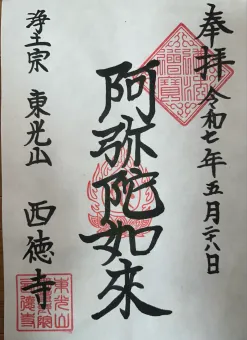 奉拝
令和七年五月二八日
阿弥陀如来
浄土宗 東光山 西徳寺